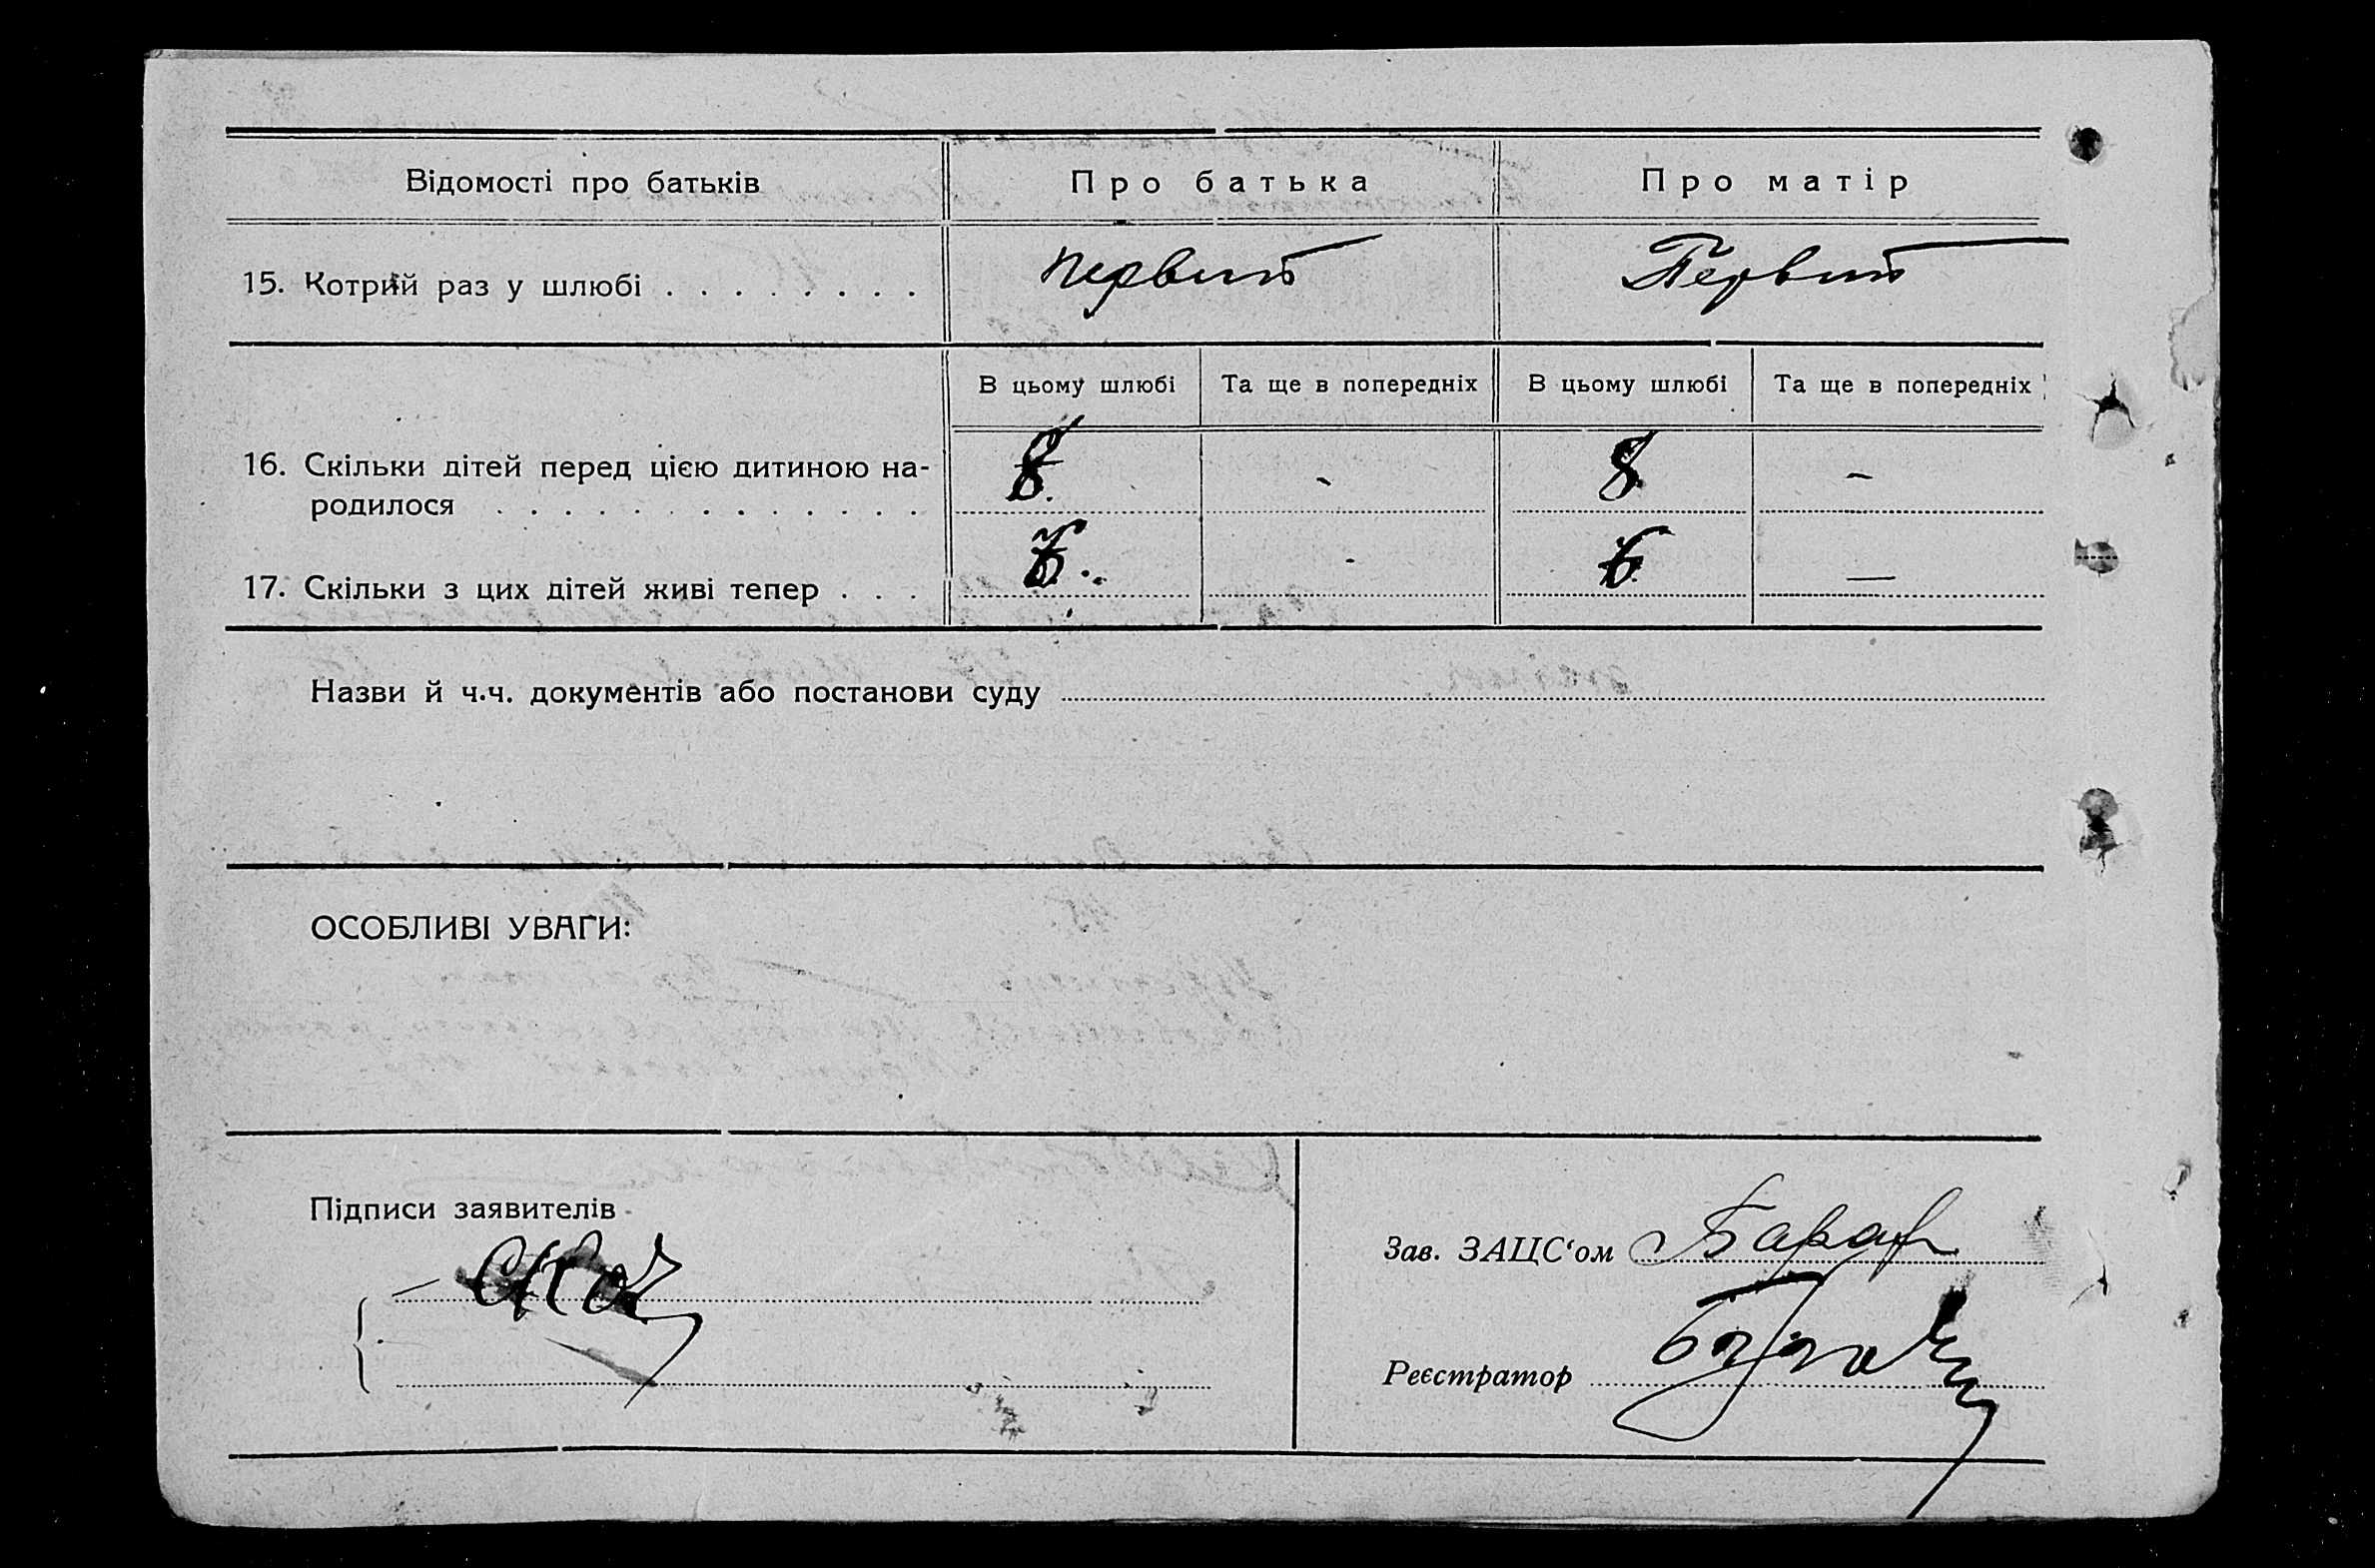 Відомості про батьків
Про батька
Про матір
15. Котрий раз у шлюбі . . . . . . . .
первый
Первый
В цьому шлюбі
Та ще в попередніх
В цьому шлюбі
Та ще в попередніх
16. Скільки дітей перед цією дитиною на-
родилося . . . . . . . . . . . . .
8
-
8
-
17. Скільки з цих дітей живі тепер . . .
-
6
—
Назви й ч.ч. документів або постанови суду
ОСОБЛИВІ УВАГИ:
Підписи заявителів
Зав. ЗАЦС‘ом
Реєстратор